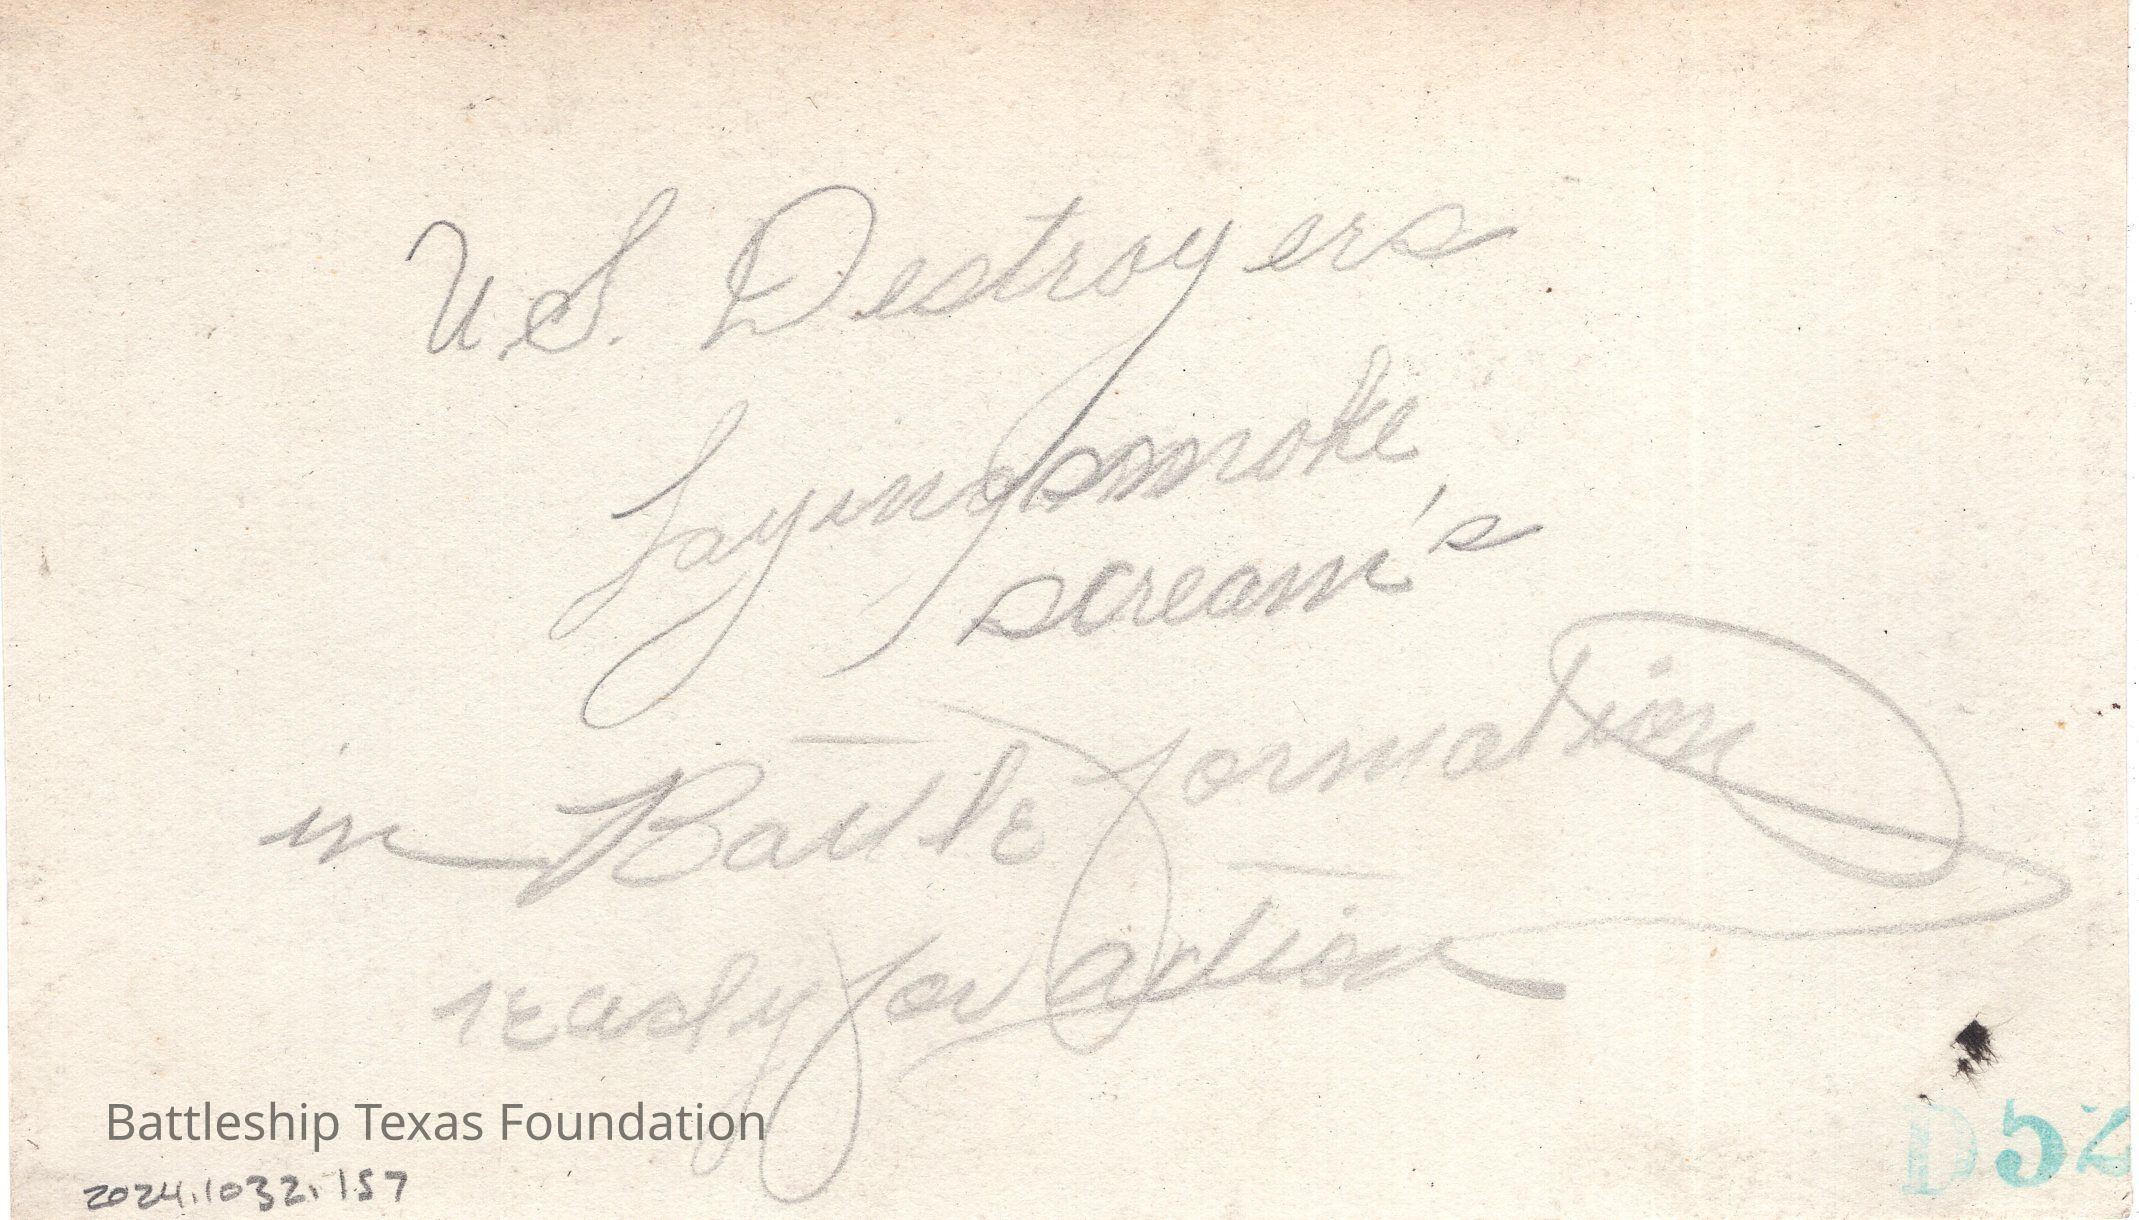 U.S. Destroyers
Laying smoke
scream's
in Battle formation
ready for action
Battleship Texas Foundation
2024.1032.157
D52